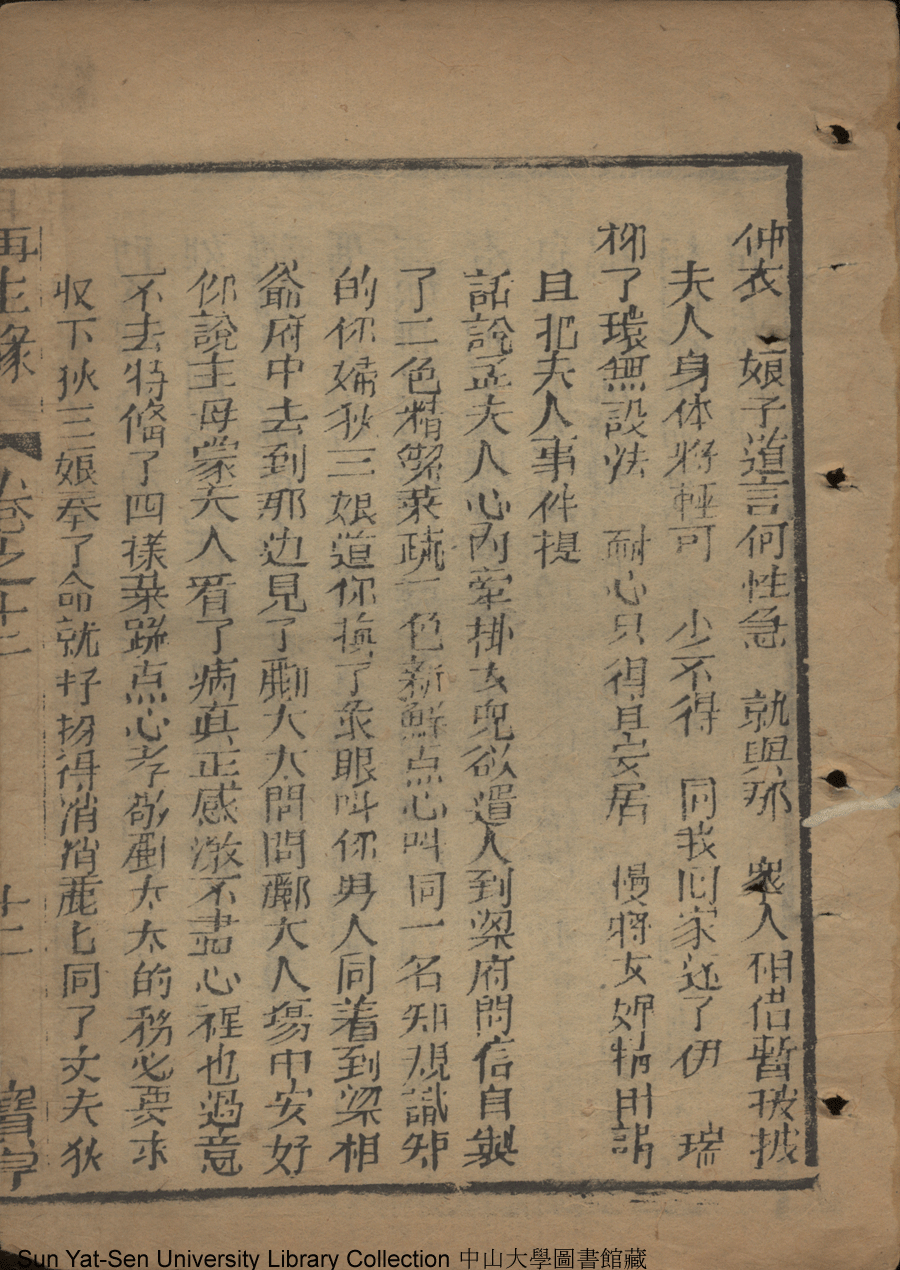 仲衣　娘子道言何性急　就與那　衆人相借暫披披
夫人身体將輕可　少不得　同我回家还了伊　瑞
柳了環無設法　耐心只得且安居　慢將女婢情由誚
且把夫人事件提
話說孟夫人心內牽掛女兒欲遣人到梁府問信自製
了二色精㓗菜疏二色新鮮点心叫同一名知規識矩
的仆婦狄三娘道你換了衆眼叫你男人同着到梁相
爺府中去到那边見了酈太太問問酈大人塲中安好
你說主母蒙夫人看了病真正感激不盡心裡也過意
不去特俻了四樣菜蹴点心孝敬酈太太的務必要求
収下狄三娘奉了命就好扮得消消麗匕同了丈夫狄
再生緣　卷之十二　十二　寳寧
Sun Yat-Sen University Library Collection 中山大學圖書館藏